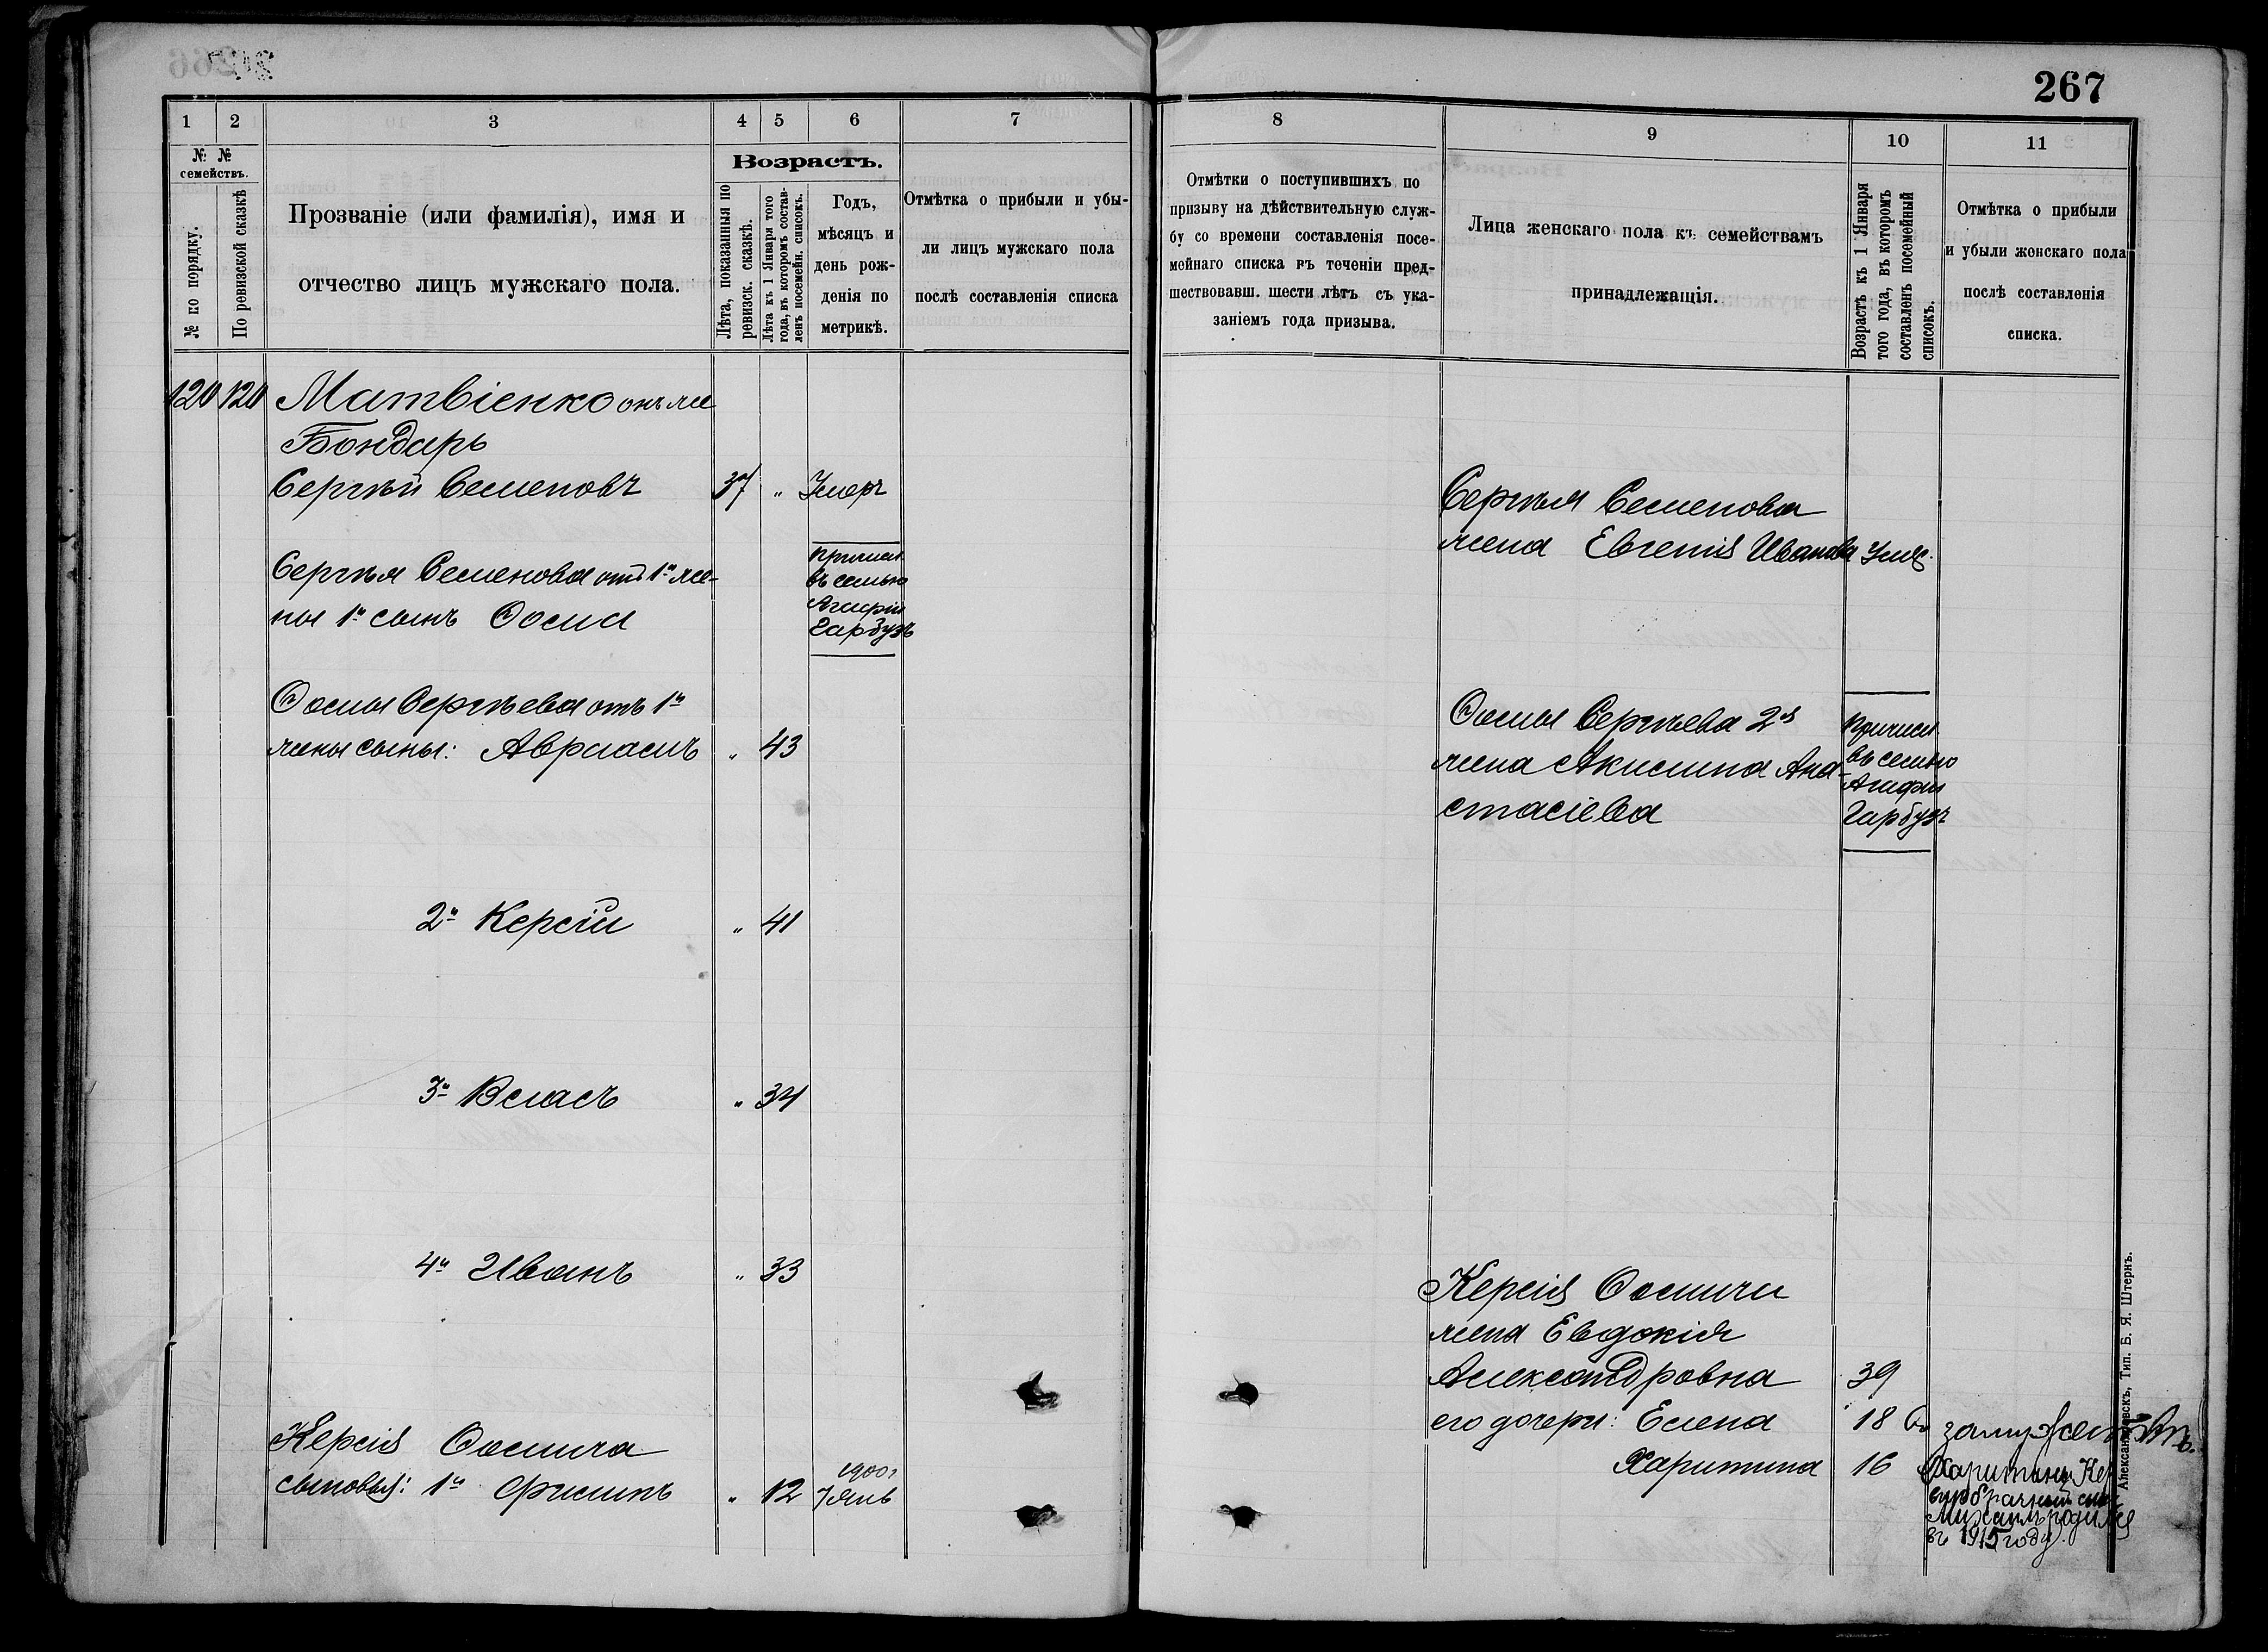 267
1 2 3 4 5 6 7
№ № семействъ.
№ по порядку.
По ревизской сказкѣ
Прозваніе (или фамилія), имя и
отчество лицъ мужскаго пола.
Возрастъ.
Лѣта, показанныя по
ревизск. сказкѣ.
Лѣта къ 1 Января того
года, въ которомъ состав-
ленъ посемейн. списокъ.
Годъ,
мѣсяцъ и
день рож-
денія по
метрикѣ.
Отмѣтка о прибыли и убы-
ли лицъ мужскаго пола
послѣ составленія списка
120 120 Матвіенко онъ же
Бондарь
Сергѣй Семеновъ 37 " Умеръ
Сергѣя Семенова отъ 1й же-
ны 1й сынъ Ѳома
причисл.
въ семью
Агафіи
Гарбузъ
Ѳомы Сергѣева отъ 1й
жены сыны: Авраамъ " 43
2й Керсій " 41
3й Власъ " 34
4й Иванъ " 33
Керсія Ѳомича
сыновья: 1й Филипъ " 12 1900г
7 Янв
8 9 10 11
Отмѣтки о поступившихъ по
призыву на дѣйствительную служ-
бу со времени составленія посе-
мейнаго списка въ теченіи пред-
шествовавш. шести лѣтъ съ ука-
заніемъ года призыва.
Лица женскаго пола къ семействамъ
принадлежащія.
Возрастъ къ 1 Января
того года, въ которомъ
составленъ посемейный
списокъ.
Отмѣтка о прибыли
и убыли женскаго пола
послѣ составленія
списка.
Сергѣя Семенова
жена Евгенія Иванова Умер.
Ѳомы Сергѣева 2я
жена Акилина Ана-
стасіева
Причисл.
въ семью
Агафіи
Гарбузъ
Керсія Ѳомича
жена Евдокія
Александровна 39
его дочери: Елена 18 Въ замужествѣ.
Харитина 16 Харитины Кер
внѣбрачный сын
Михаилъ родился
въ 1915 году.
Александровскъ, Тип. Б. Я. Штернъ.